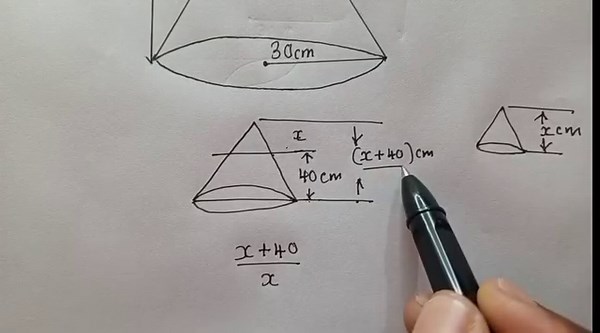 30cm
x
x cm
(x+40)cm
40cm
x+40
x